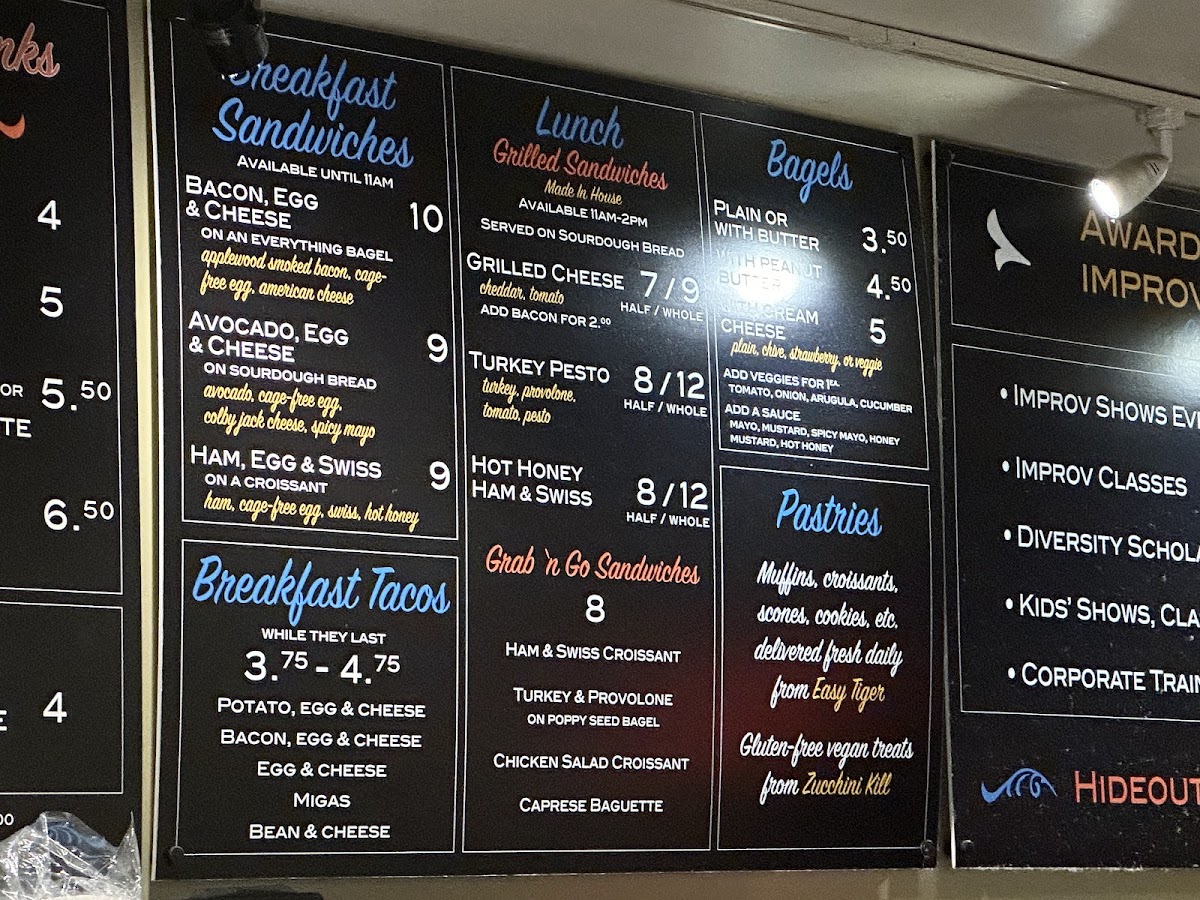 nks
4
5
OR 5.50
TE
6.50
E 4
00
Breakfast
Sandwiches
AVAILABLE UNTIL 11AM
BACON, EGG
& CHEESE 10
ON AN EVERYTHING BAGEL
applewood smoked bacon, cage-
free egg, american cheese
AVOCADO, EGG
& CHEESE 9
ON SOURDOUGH BREAD
avocado, cage-free egg,
colby jack cheese, spicy mayo
HAM, EGG & SWISS 9
ON A CROISSANT
ham, cage-free egg, swiss, hot honey
Breakfast Tacos
WHILE THEY LAST
3.75 - 4.75
POTATO, EGG & CHEESE
BACON, EGG & CHEESE
EGG & CHEESE
MIGAS
BEAN & CHEESE
Lunch
Grilled Sandwiches
Made In House
AVAILABLE 11AM-2PM
SERVED ON SOURDOUGH BREAD
GRILLED CHEESE 7/9
cheddar, tomato HALF / WHOLE
ADD BACON FOR 2.00
TURKEY PESTO 8/12
turkey, provolone, HALF / WHOLE
tomato, pesto
HOT HONEY
HAM & SWISS 8/12
HALF / WHOLE
Grab 'n Go Sandwiches
8
HAM & SWISS CROISSANT
TURKEY & PROVOLONE
ON POPPY SEED BAGEL
CHICKEN SALAD CROISSANT
CAPRESE BAGUETTE
Bagels
PLAIN OR
WITH BUTTER 3.50
WITH PEANUT
BUTTER 4.50
WITH CREAM
CHEESE 5
plain, chive, strawberry, or veggie
ADD VEGGIES FOR 1EA.
TOMATO, ONION, ARUGULA, CUCUMBER
ADD A SAUCE
MAYO, MUSTARD, SPICY MAYO, HONEY
MUSTARD, HOT HONEY
Pastries
Muffins, croissants,
scones, cookies, etc.
delivered fresh daily
from Easy Tiger
Gluten-free vegan treats
from Zucchini Kill
AWARD
IMPROV
• IMPROV SHOWS EV
• IMPROV CLASSES
• DIVERSITY SCHOLA
• KIDS' SHOWS, CLA
• CORPORATE TRAIN
HIDEOUT